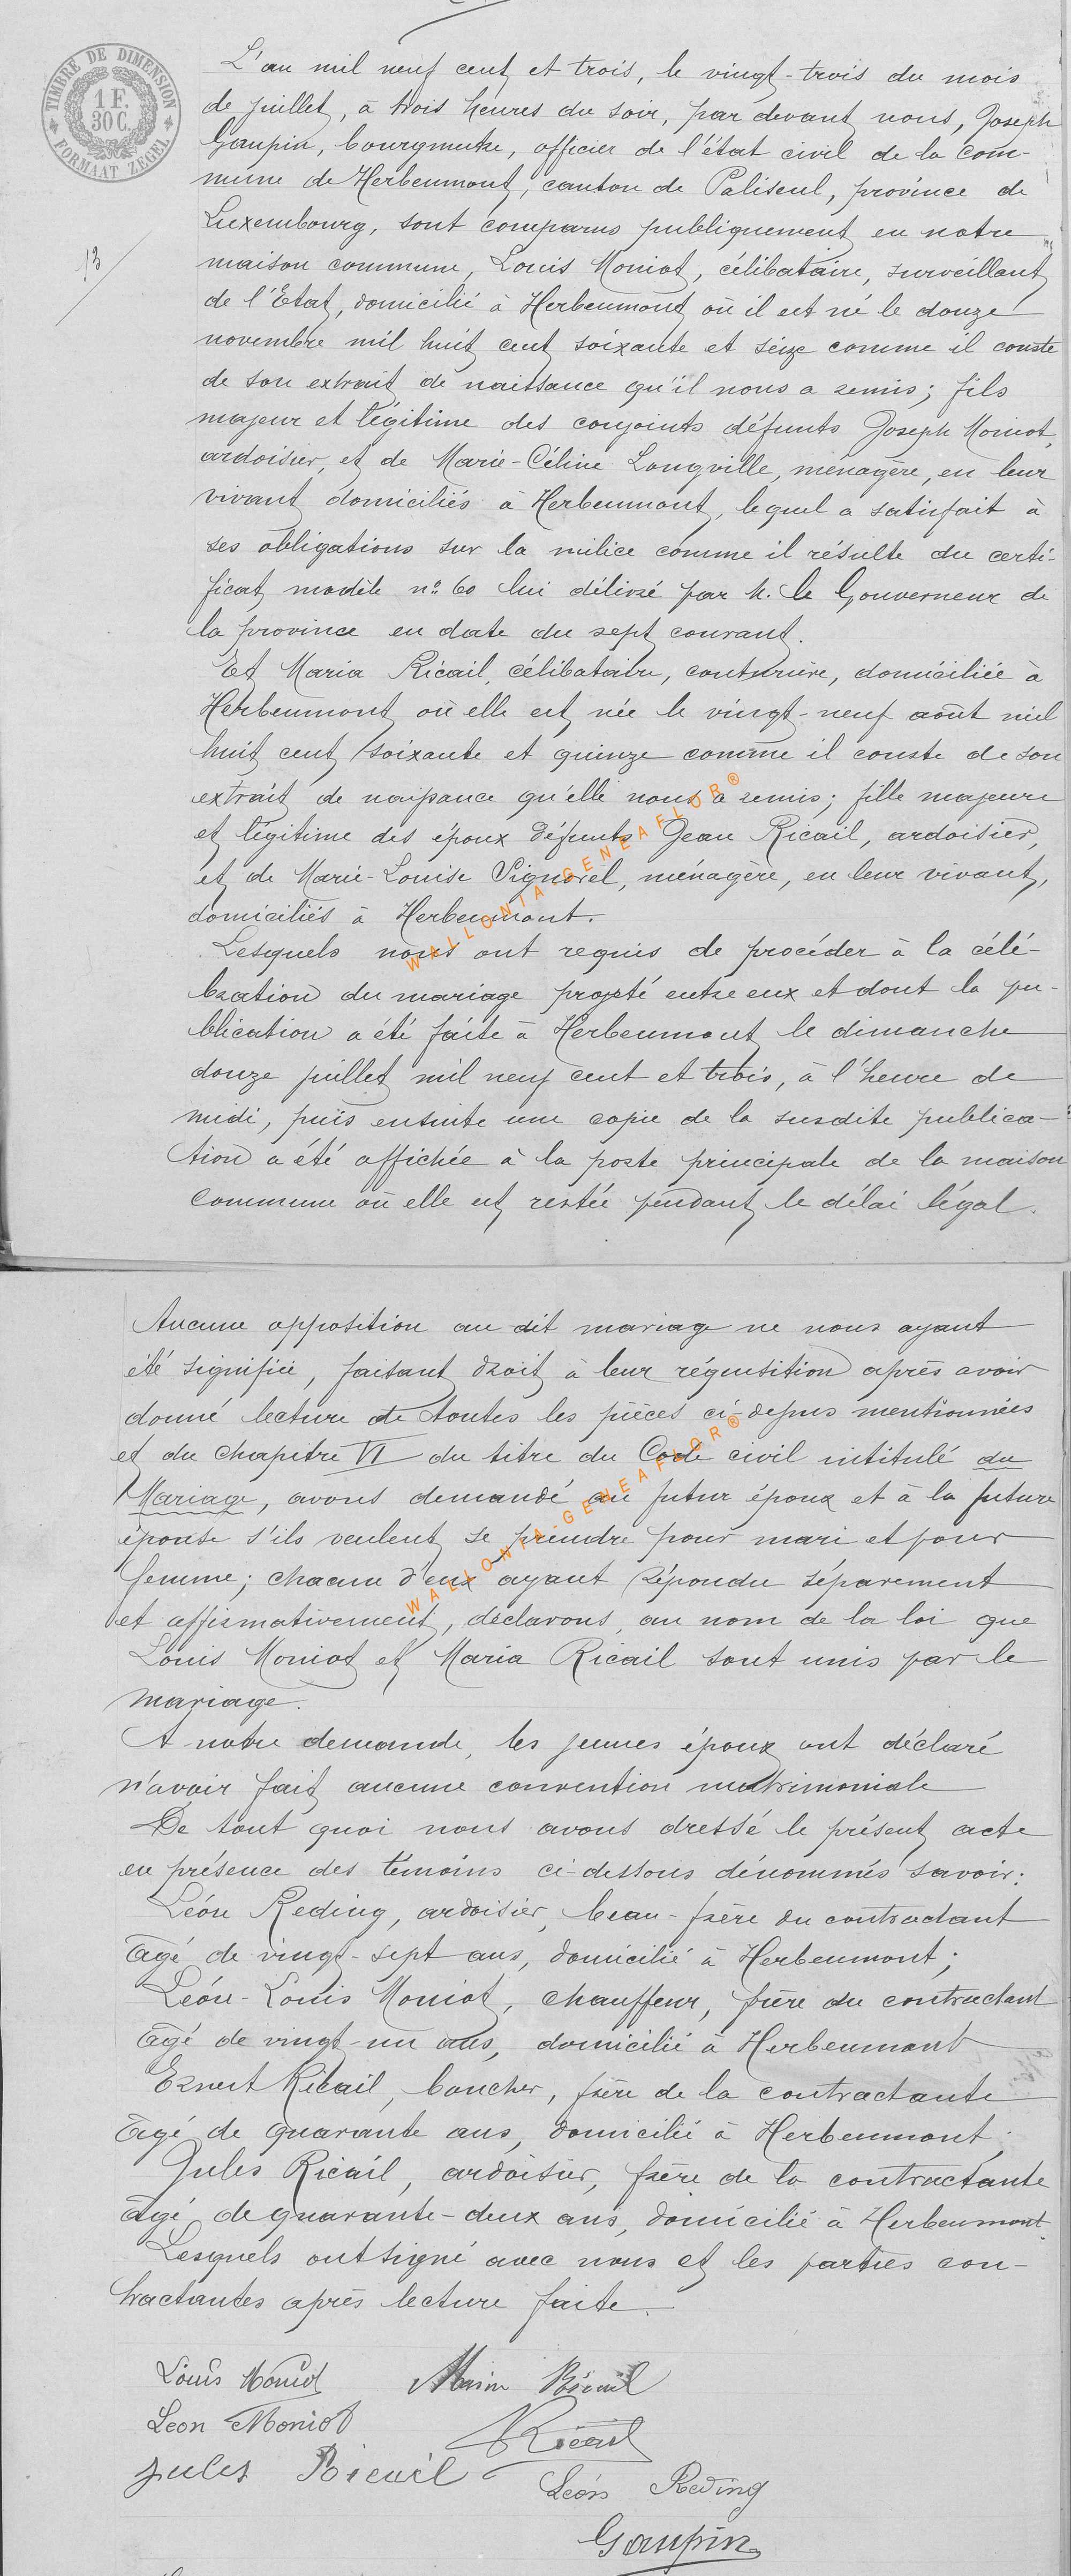 TIMBRE DE DIMENSION
1 F.
30 C.
FORMAAT ZEGEL
13
L'an mil neuf cent et trois, le vingt-trois du mois
de juillet, à trois heures du soir, par devant nous, Joseph
Gaupin, bourgmestre, officier de l'état civil de la com-
mune de Herbeumont, canton de Paliseul, province de
Luxembourg, sont comparus publiquement en notre
maison commune, Louis Moniot, célibataire, surveillant
de l'Etat, domicilié à Herbeumont où il est né le douze
novembre mil huit cent soixante et seize comme il conste
de son extrait de naissance qu'il nous a remis; fils
majeur et légitime des conjoints défunts Joseph Moniot,
ardoisier, et de Marie-Céline Longville, ménagère, en leur
vivant domiciliés à Herbeumont, lequel a satisfait à
ses obligations sur la milice comme il résulte du certi-
ficat modèle n° 60 lui délivré par M. le Gouverneur de
la province en date du sept courant.
Et Maria Ricail, célibataire, couturière, domiciliée à
Herbeumont où elle est née le vingt-neuf août mil
huit cent soixante et quinze comme il conste de son
extrait de naissance qu'elle nous a remis; fille majeure
et légitime des époux défunts Jean Ricail, ardoisier,
et de Marie-Louise Pignorel, ménagère, en leur vivant,
domiciliés à Herbeumont.
Lesquels nous ont requis de procéder à la célé-
bration du mariage projeté entre eux et dont la pu-
blication a été faite à Herbeumont le dimanche
douze juillet mil neuf cent et trois, à l'heure de
midi, puis ensuite une copie de la susdite publica-
tion a été affichée à la porte principale de la maison
commune où elle est restée pendant le délai légal.
WALLONIA-GENEAFLOR®
Aucune opposition au dit mariage ne nous ayant
été signifiée, faisant droit à leur réquisition après avoir
donné lecture de toutes les pièces ci-dessus mentionnées
et du chapitre VI du titre du Code civil intitulé du
Mariage, avons demandé au futur époux et à la future
épouse s'ils veulent se prendre pour mari et pour
femme; chacun d'eux ayant répondu séparement
et affirmativement, déclarons, au nom de la loi que
Louis Moniot et Maria Ricail sont unis par le
mariage.
A notre demande, les jeunes époux ont déclaré
n'avoir fait aucune convention matrimoniale
De tout quoi nous avons dressé le présent acte
en présence des témoins ci-dessous dénommés savoir:
Léon Reding, ardoisier, beau-frère du contractant
âgé de vingt-sept ans, domicilié à Herbeumont;
Léon-Louis Moniot, chauffeur, frère du contractant
âgé de vingt-un ans, domicilié à Herbeumont
Ernest Ricail, boucher, frère de la contractante
âgé de quarante ans, domicilié à Herbeumont;
Jules Ricail, ardoisier, frère de la contractante
âgé de quarante-deux ans, domicilié à Herbeumont.
Lesquels ont signé avec nous et les parties con-
tractantes après lecture faite.
WALLONIA-GENEAFLOR®
Louis Moniot Maria Ricail
Leon Moniot Ricail
Jules Ricail Léon Reding
Gaupin